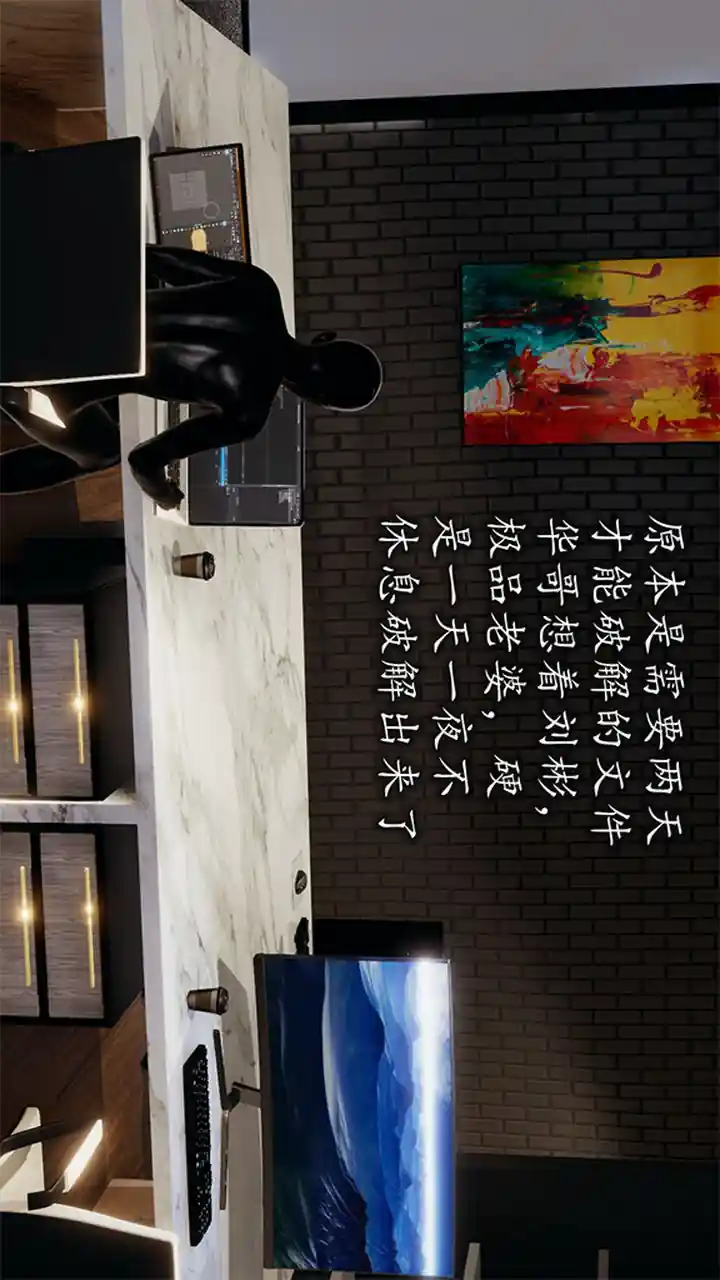 原本是需要两天
才能破解的文件
华哥想着刘彬，
极品老婆，硬
是一天一夜不
休息破解出来了